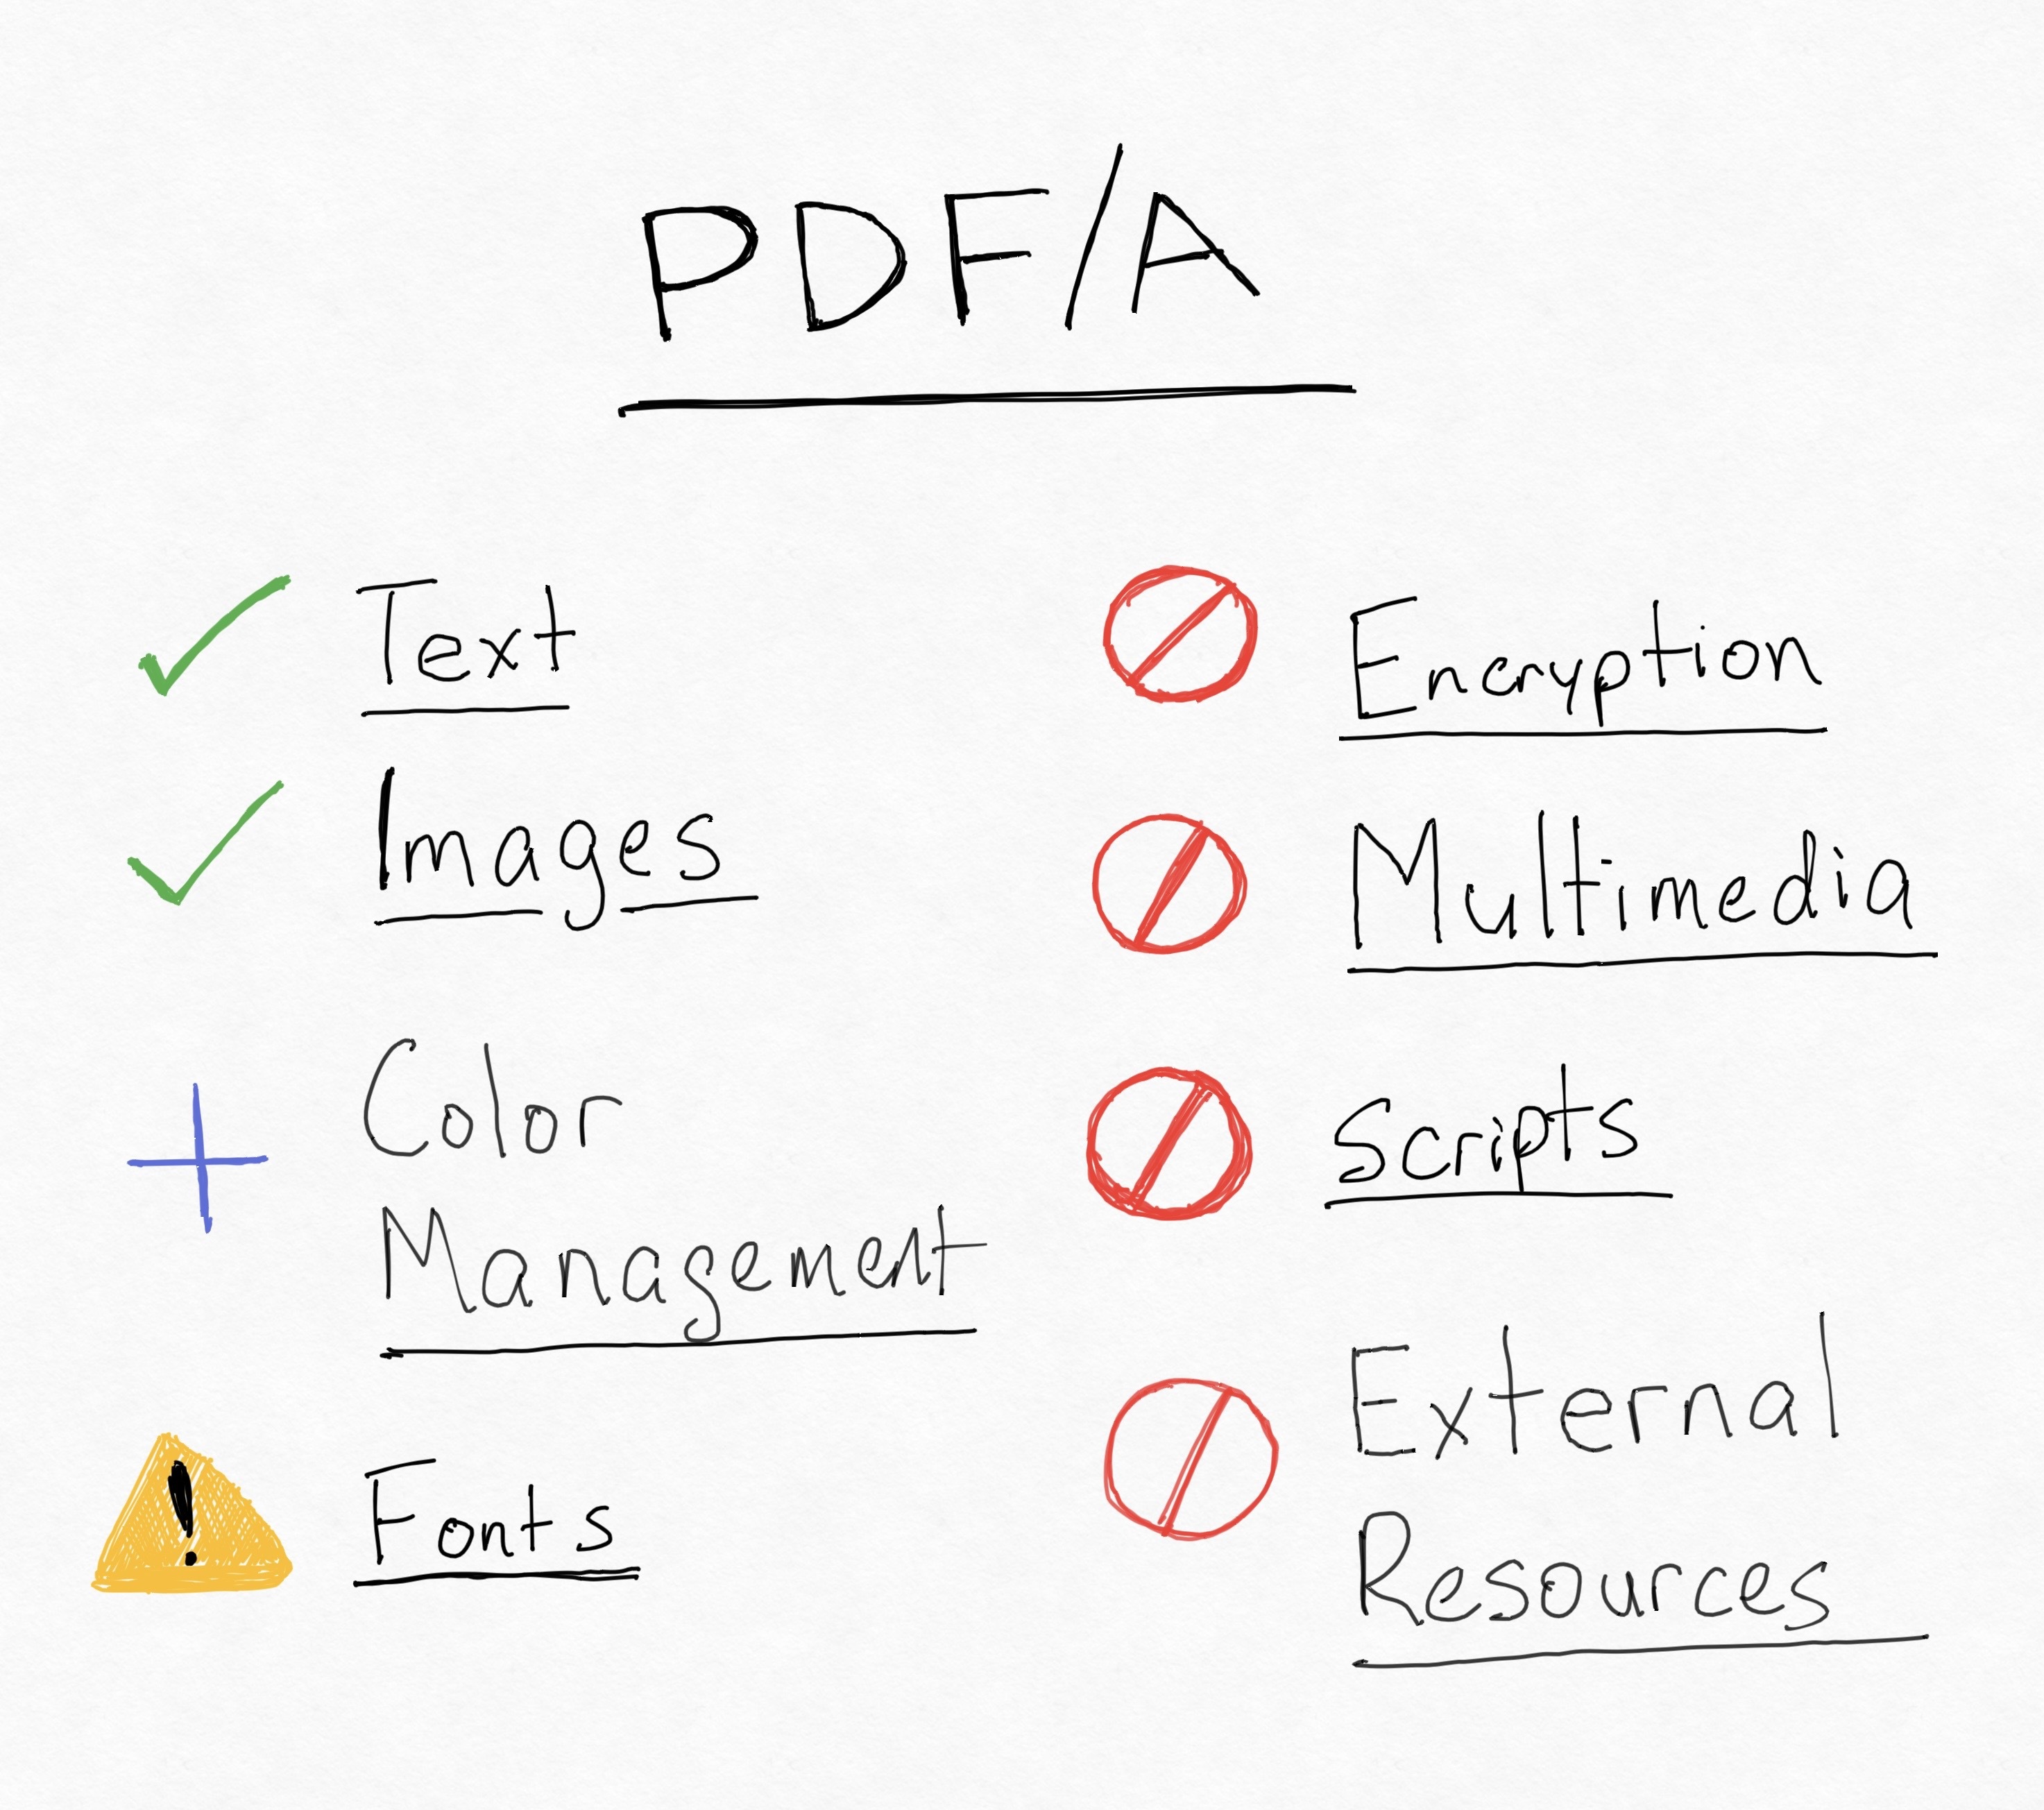 PDF/A
Text
Images
Color
Management
! Fonts
Encryption
Multimedia
Scripts
External
Resources